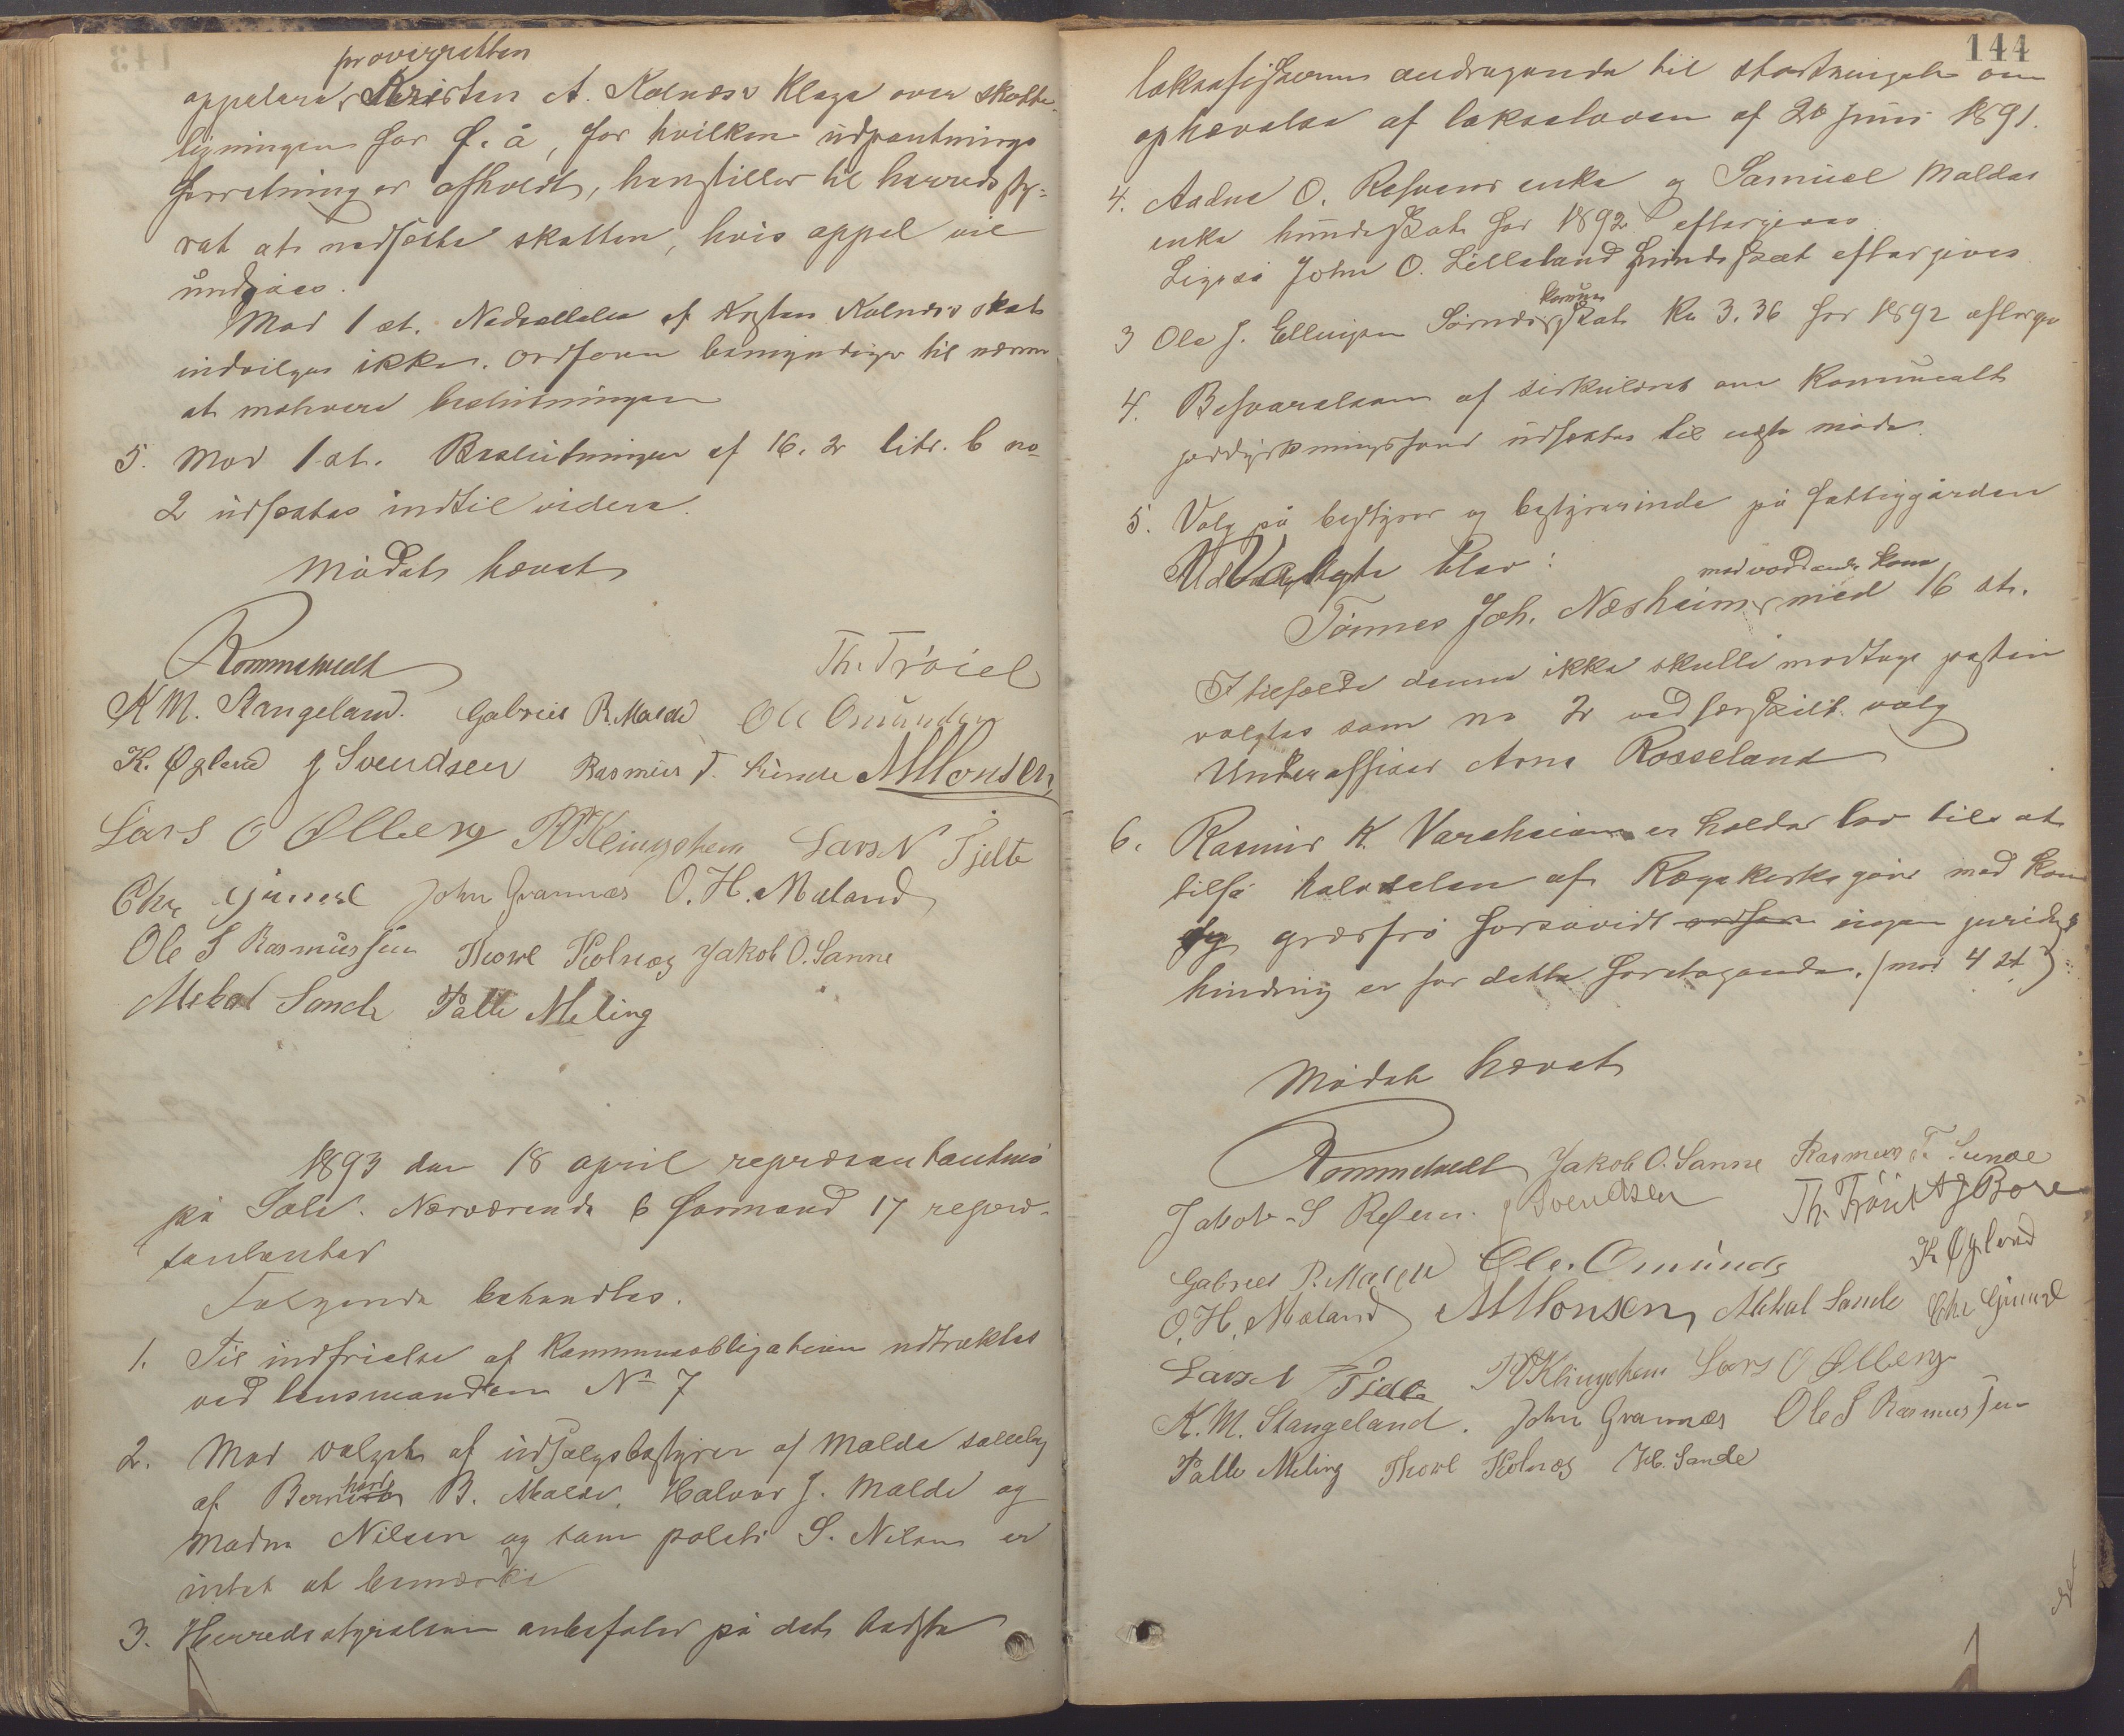 proviant­retten
appelere Kristen A. Kolnæs's klage over skatte-
ligningen for f. å, for hvilken udpantnings
forretning er afholdt, henstiller til herredssty-
ret at nedsætte skatten, hvis appel vil
undgåes.
Mod 1 st. Nedsættelse af Kristen Kolnæs's skat
indvilges ikke. Ordføren bemyndiges til nærmere
at motivere beslutningen
5. Mod 1 st. Beslutningen af 16. 2 litr. b no
2 udsættes indtil videre.
Mødet hævet
Rommetvedt
Th. Trøiel
K M. Stangeland. Gabriel R. Malde Ole Omundsen
K. Øgland J Svendsen Rasmus T. Sunde A M Monsen
Lars O Ølberg R Klingsheim Lars N Tjelte
Chr Gimre John Grannæs O. H. Mæland
Ole S Rasmussen Thore Kolnæs Jakob O. Sanne
Mikal Sande Palle Meling
1893 den 18 april repræsentantmø
på Sole. Nærværende 6 formænd 17 repræ-
sentanter
Følgende behandles.
1. Til indfrielse af kommuneobligationen udtrækkes
ved lensmanden No 7
2. Mod valget af udsalgsbestyrer af Malde sællelag
af Bernhard B. Malde, Halvor J. Malde og
Madm Nilsen og som politi S. Nilsen er
intet at bemærke
3. Herredsstyrelsen anbefaler på det bedste
144
laksefiskernes andragende til stortinget om
ophævelse af lakseloven af 20 juni 1891.
4. Aadne O. Refsnes enke og Samuel Maldes
enke hundeskat for 1892 eftergives
Ligeså John O. Lilleland hundeskat eftergives
komun
3 Ole J. Ellingsen Sørnæs skat Kr 3.36 for 1892 eftergi
4. Besvarelsen af sirkulæret om kommunalt
jorddyrkningsfond udsættes til næste møde.
5. Valg på bestyrer og bestyrerinde på fattiggården
Udvalgte blev:
med vordende kone
Tønnes Joh. Næsheim med 16 st.
I tilfælde denne ikke skulle modtage posten
valgtes som no 2 ved særskilt valg
Underoffiser Arne Rosseland
6. Rasmus K. Varheim er holder lov til at
tilså halvdelen af Rægekirkegård med korn
og græsfrø forsåvidt ordfør ingen juridisk
hindring er for dette foretagende. (mod 4 st)
Mødet hævet
Rommetvedt Jakob O. Sanne Rasmus T. Sunde
Jakob S Refsnes. J Svendsen Th. Trøiel A J Bore
Gabriel R. Malde Ole. Omunds K Øgland
O. H. Mæland A M Monsen Mikal Sande Chr Gimre
Lars N Tjelte R Klingsheim Lars O Ølberg
K. M. Stangeland. John Grannæs Ole S Rasmussen
Palle Meling Thore Kolnæs H. Sande